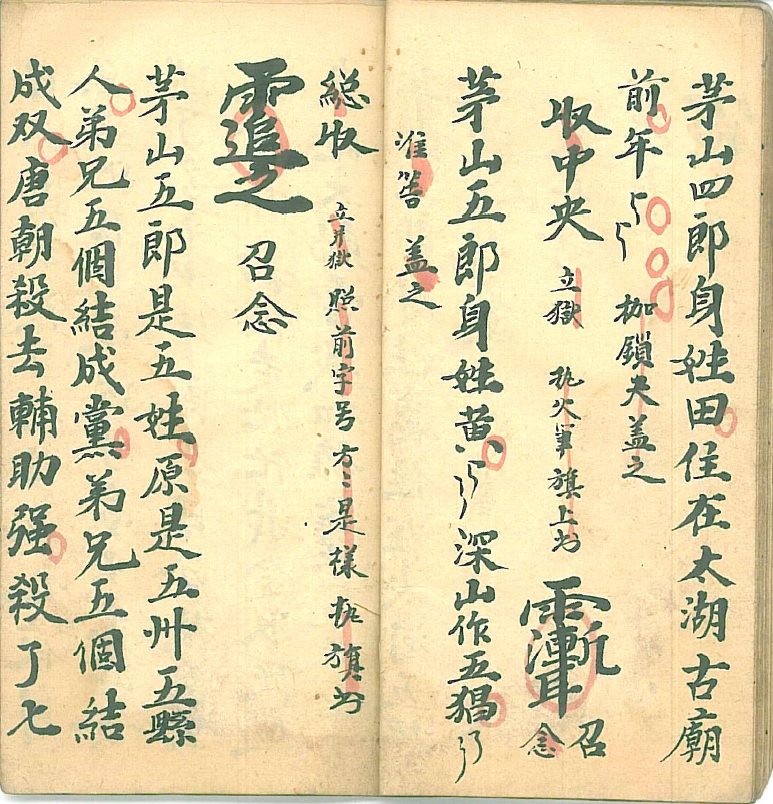 茅山四郎身姓田住在太湖古廟
前年 枷鎖夫盖之
收中央 立獄 执火軍旗上为 召念
茅山五郎身姓黄 深山作五猖
准荅 盖之
総收 立牙獄 照前字号方之是様 执旗为
召念
茅山五郎是五姓原是五州五縣
人弟兄五個結成黨弟兄五個結
成双唐朝殺去輔助强殺了七